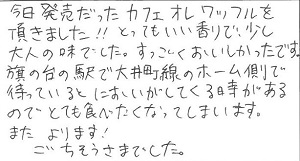 今日発売だったカフェオレワッフルを
頂きました!! とってもいい香りで、少し
大人の味でした。すっごくおいしかったです。
旗の台の駅で大井町線のホーム側で
待っているとにおいがしてくる時がある
のでとても食べたくなってしまいます。
また よります!
ごちそうさまでした。